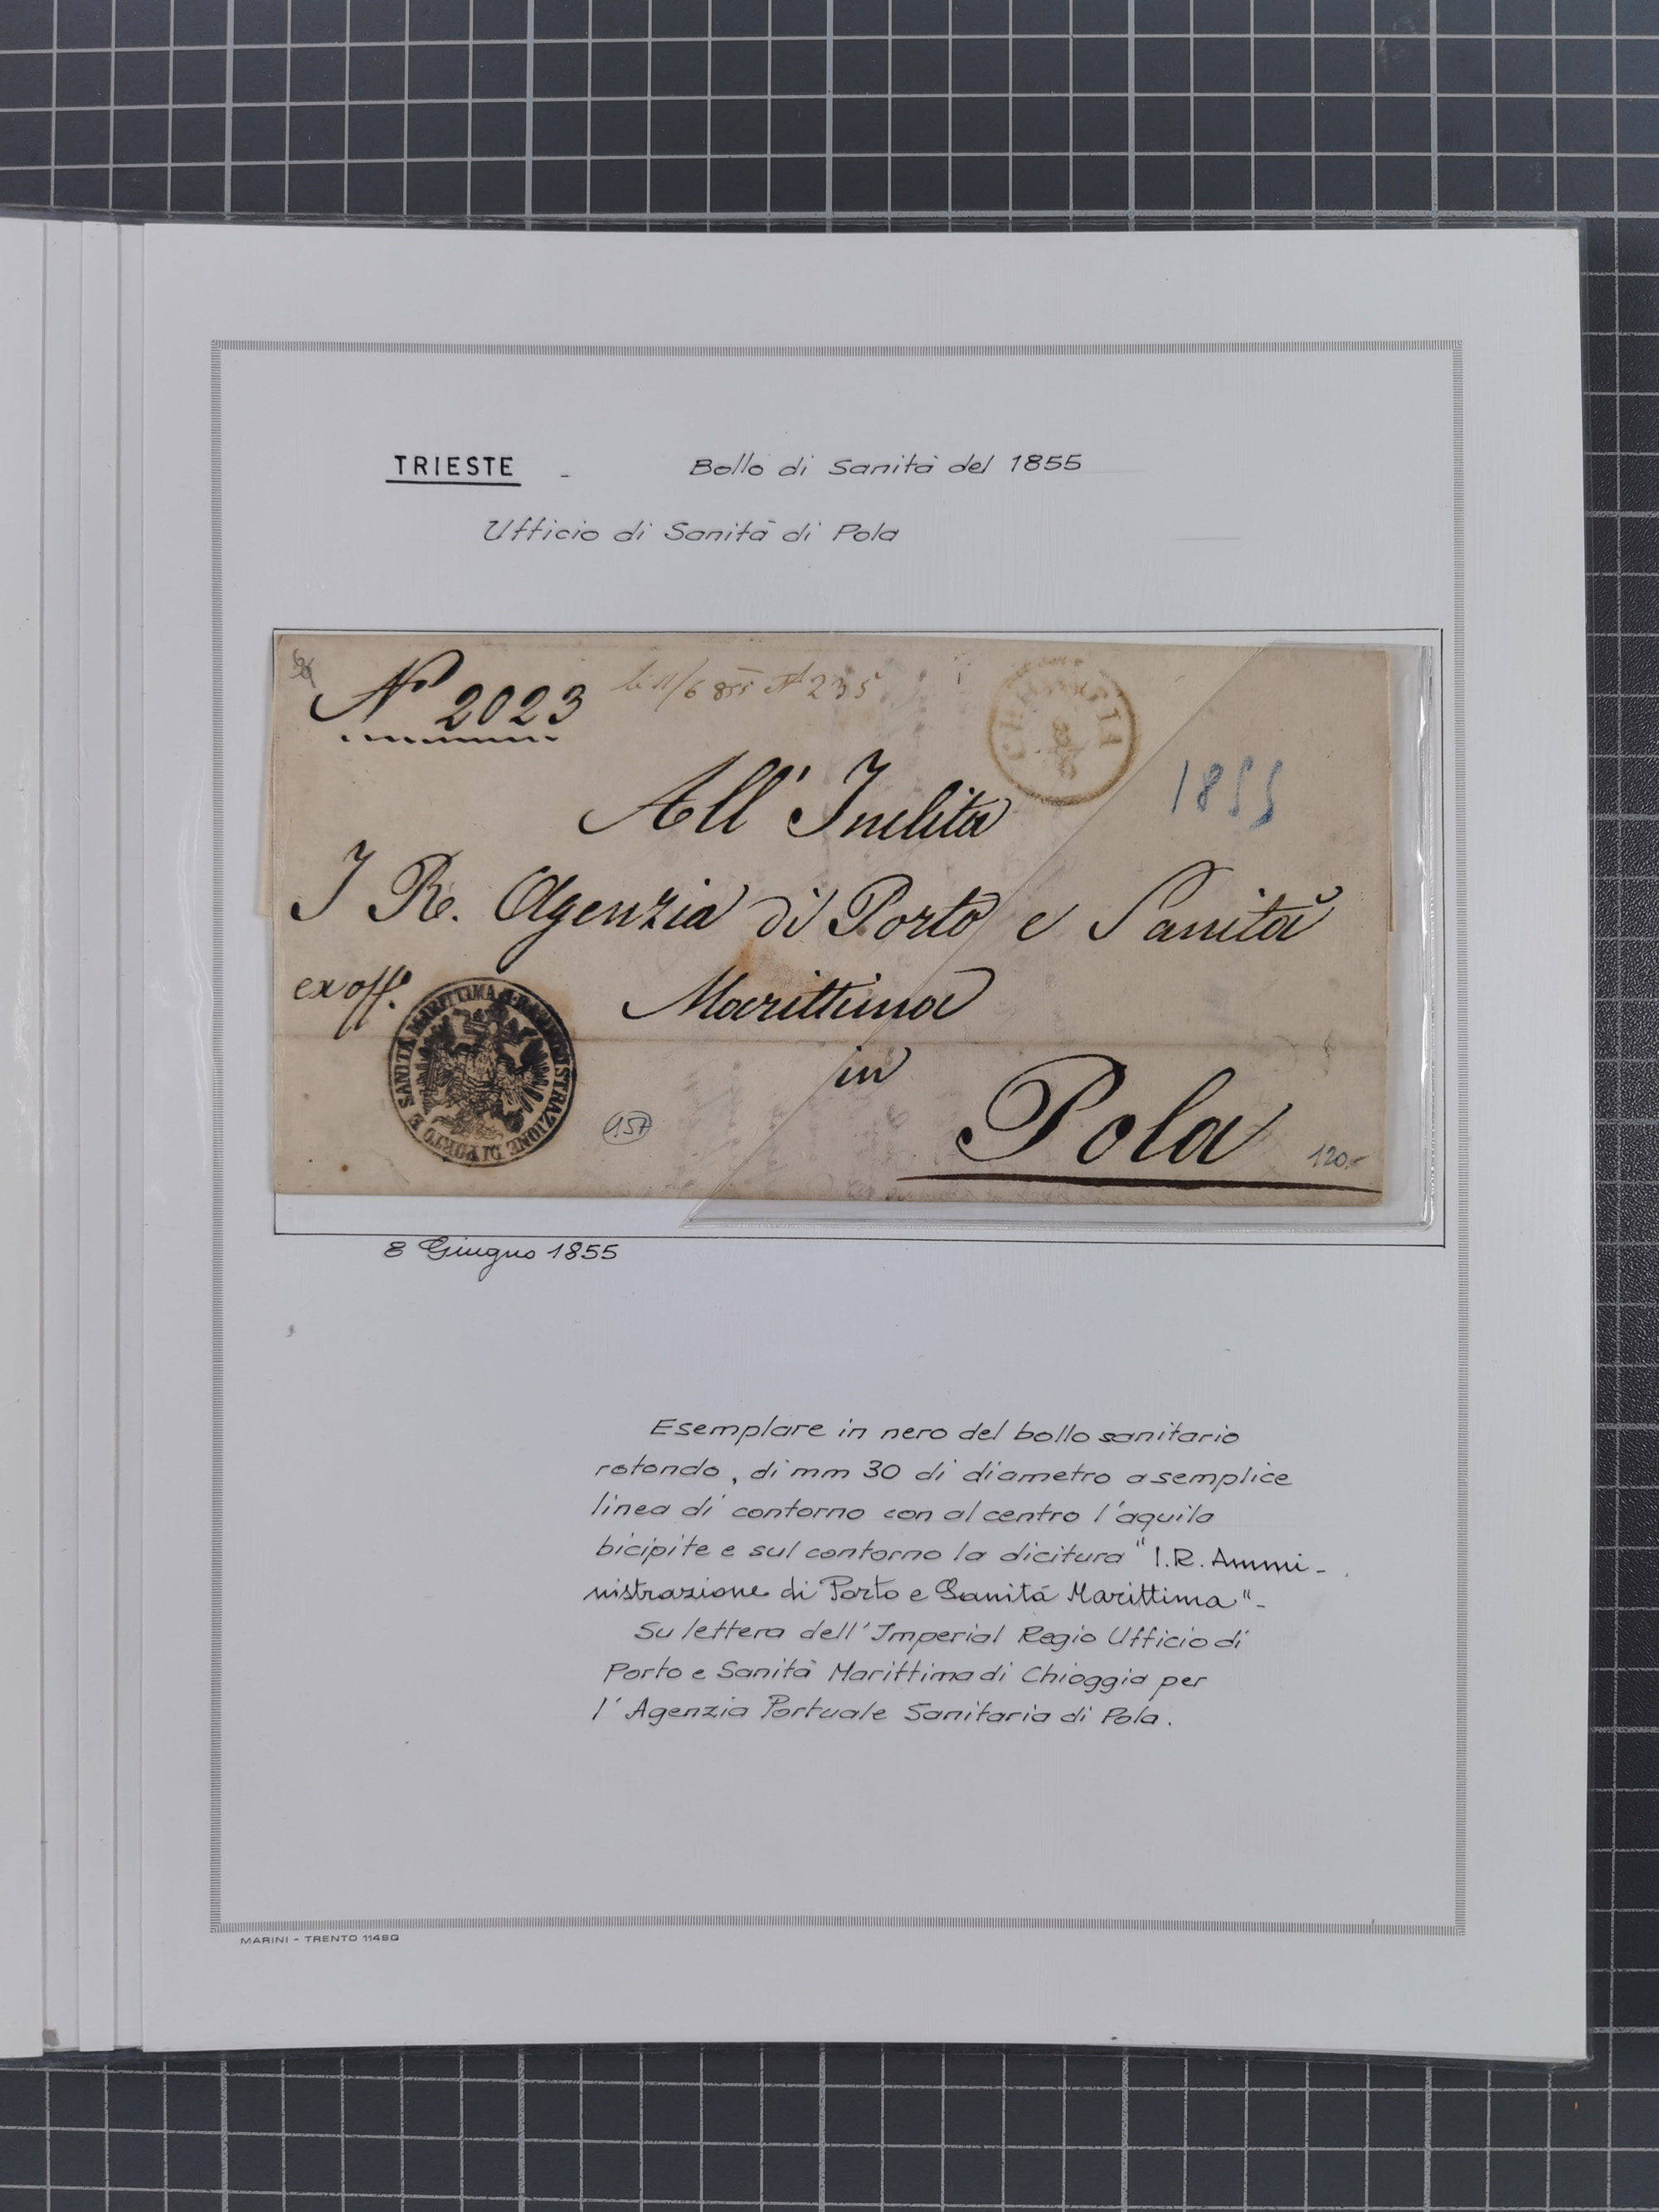 TRIESTE - Bollo di Sanità del 1855
Ufficio di Sanità di Pola
Nº 2023
1855
All' Inclita
I R. Agenzia di Porto e Sanità
exoff.
Marittima
in
Pola
I. R. AMMINISTRAZIONE DI PORTO E SANITÀ MARITTIMA
157
120.-
8 Giugno 1855
Esemplare in nero del bollo sanitario
rotondo, di mm 30 di diametro a semplice
linea di contorno con al centro l'aquila
bicipite e sul contorno la dicitura "I.R. Ammi-
nistrazione di Porto e Sanitá Marittima"-
Su lettera dell'Imperial Regio Ufficio di
Porto e Sanità Marittima di Chioggia per
l'Agenzia Portuale Sanitaria di Pola.
MARINI - TRENTO 114SG